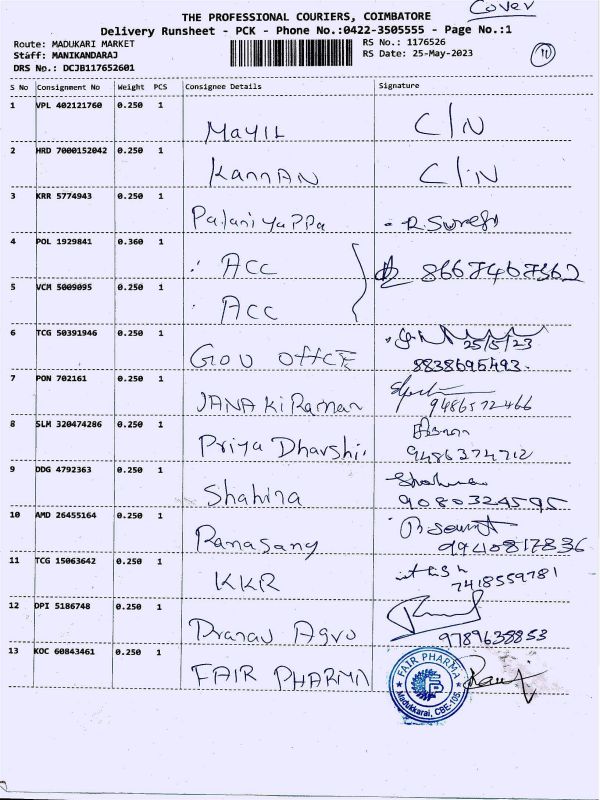 Cover
THE PROFESSIONAL COURIERS, COIMBATORE
Delivery Runsheet - PCK - Phone No.:0422-3505555 - Page No.:1
Route: MADUKARI MARKET
Staff: MANIKANDARAJ
DRS No.: DCJB117652601
RS No.: 1176526
RS Date: 25-May-2023
11
S No Consignment No Weight PCS Consignee Details Signature
1 VPL 402121760 0.250 1
MAYIL C/N
2 HRD 7000152042 0.250 1
KannAN C/N
3 KRR 5774943 0.250 1
PalaniyaPPa R.Suresh
4 POL 1929841 0.360 1
ACC 8667467562
5 VCM 5009095 0.250 1
ACC
6 TCG 50391946 0.250 1
25/5/23
GOV OffCE 8838695492
7 PON 702161 0.250 1
JANAKiRaman 9486572466
8 SLM 320474286 0.250 1
Priya Dharshi 9486374712
9 DDG 4792363 0.250 1
Shahina
9080324595
10 AMD 26455164 0.250 1
Ranasang 9940817836
11 TCG 15063642 0.250 1
KKR 7418559781
12 DPI 5186748 0.250 1
Pranav Agro 9789638853
13 KOC 60843461 0.250 1
FAIR PHARMA
FAIR PHARMA
Madukkarai, CBE-105.